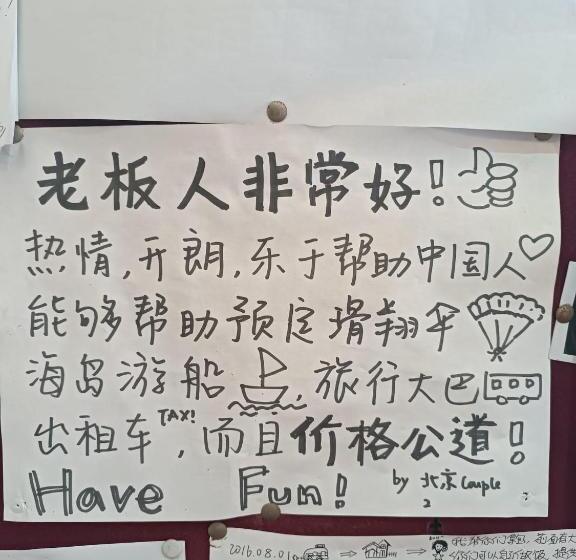 老板人非常好!
热情,开朗,乐于帮助中国人
能够帮助预定滑翔伞
海岛游船,旅行大巴
出租车TAXI,而且价格公道!
Have Fun!
by 北京Couple
2
2016.08.01